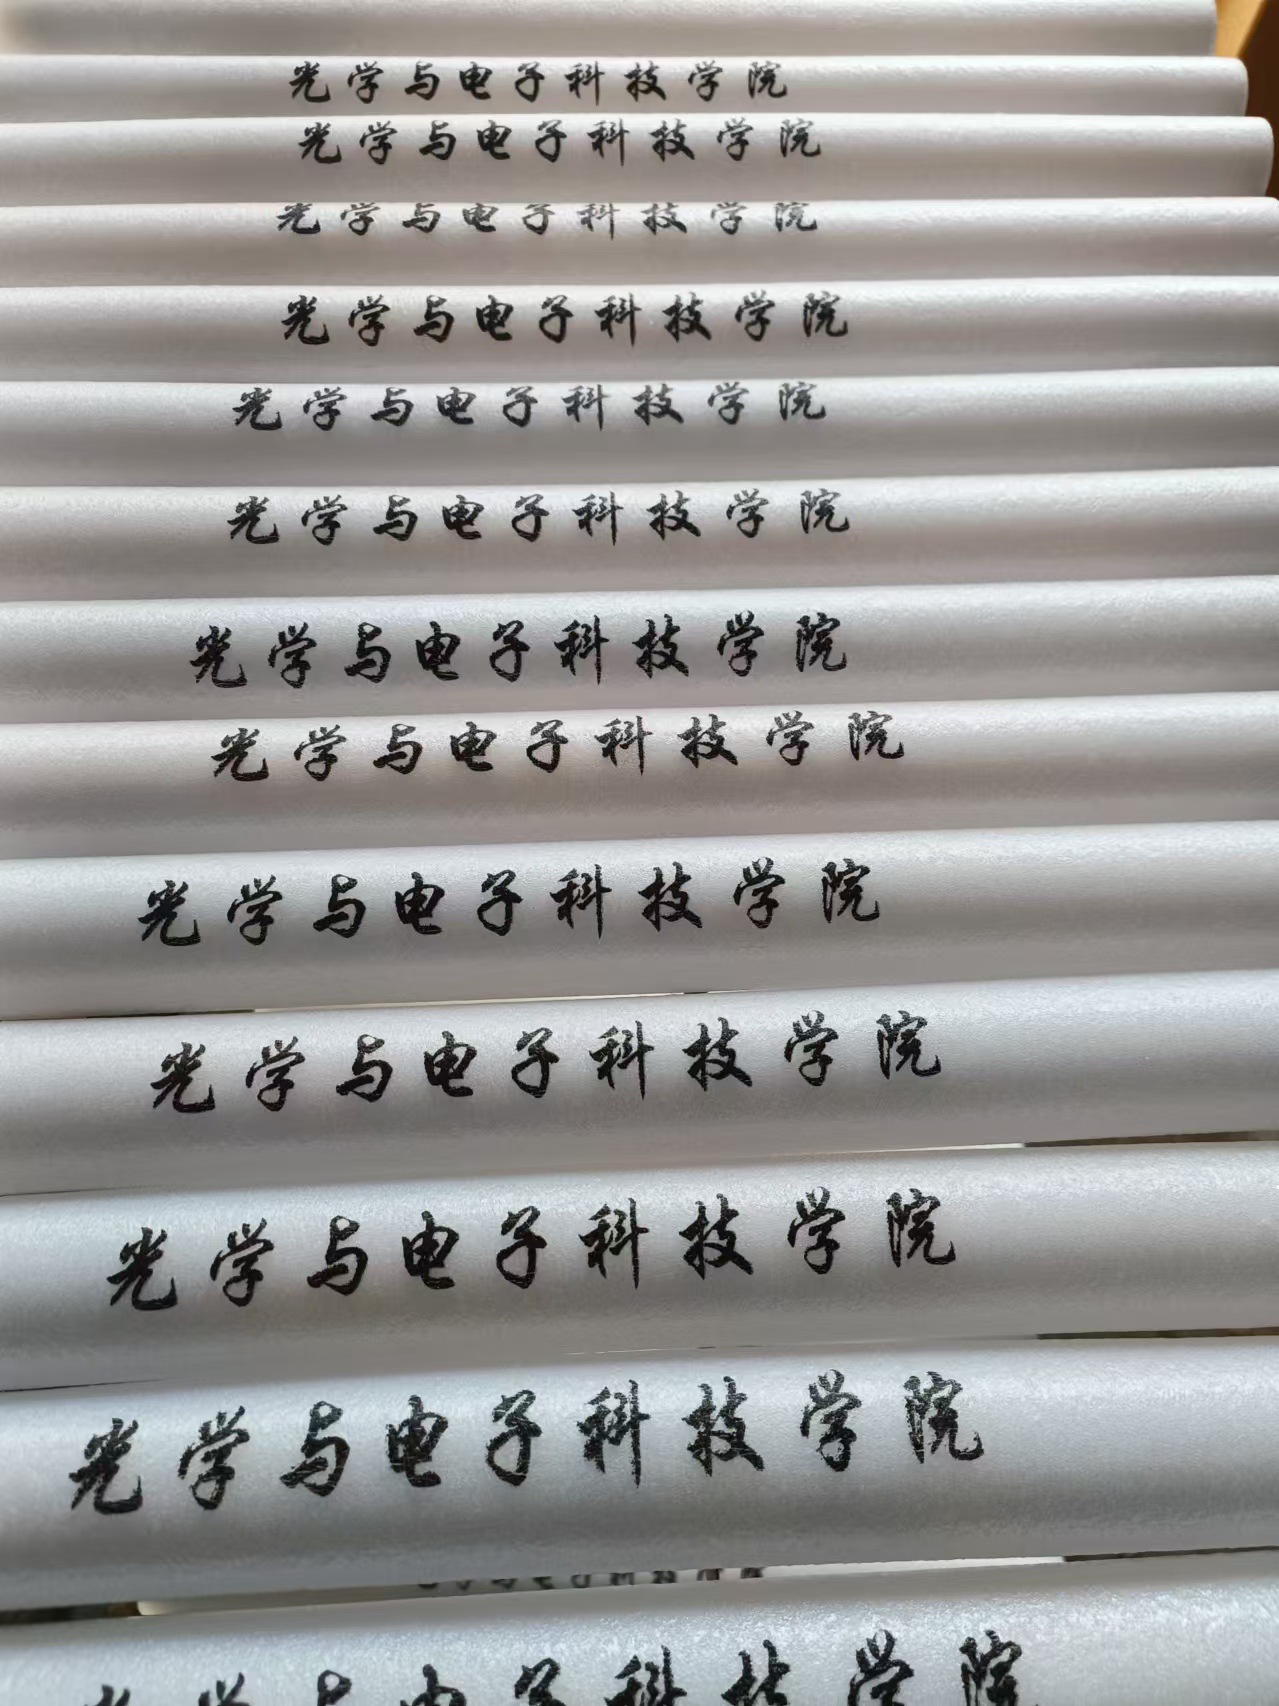 光学与电子科技学院
光学与电子科技学院
光学与电子科技学院
光学与电子科技学院
光学与电子科技学院
光学与电子科技学院
光学与电子科技学院
光学与电子科技学院
光学与电子科技学院
光学与电子科技学院
光学与电子科技学院
光学与电子科技学院
光学与电子科技学院